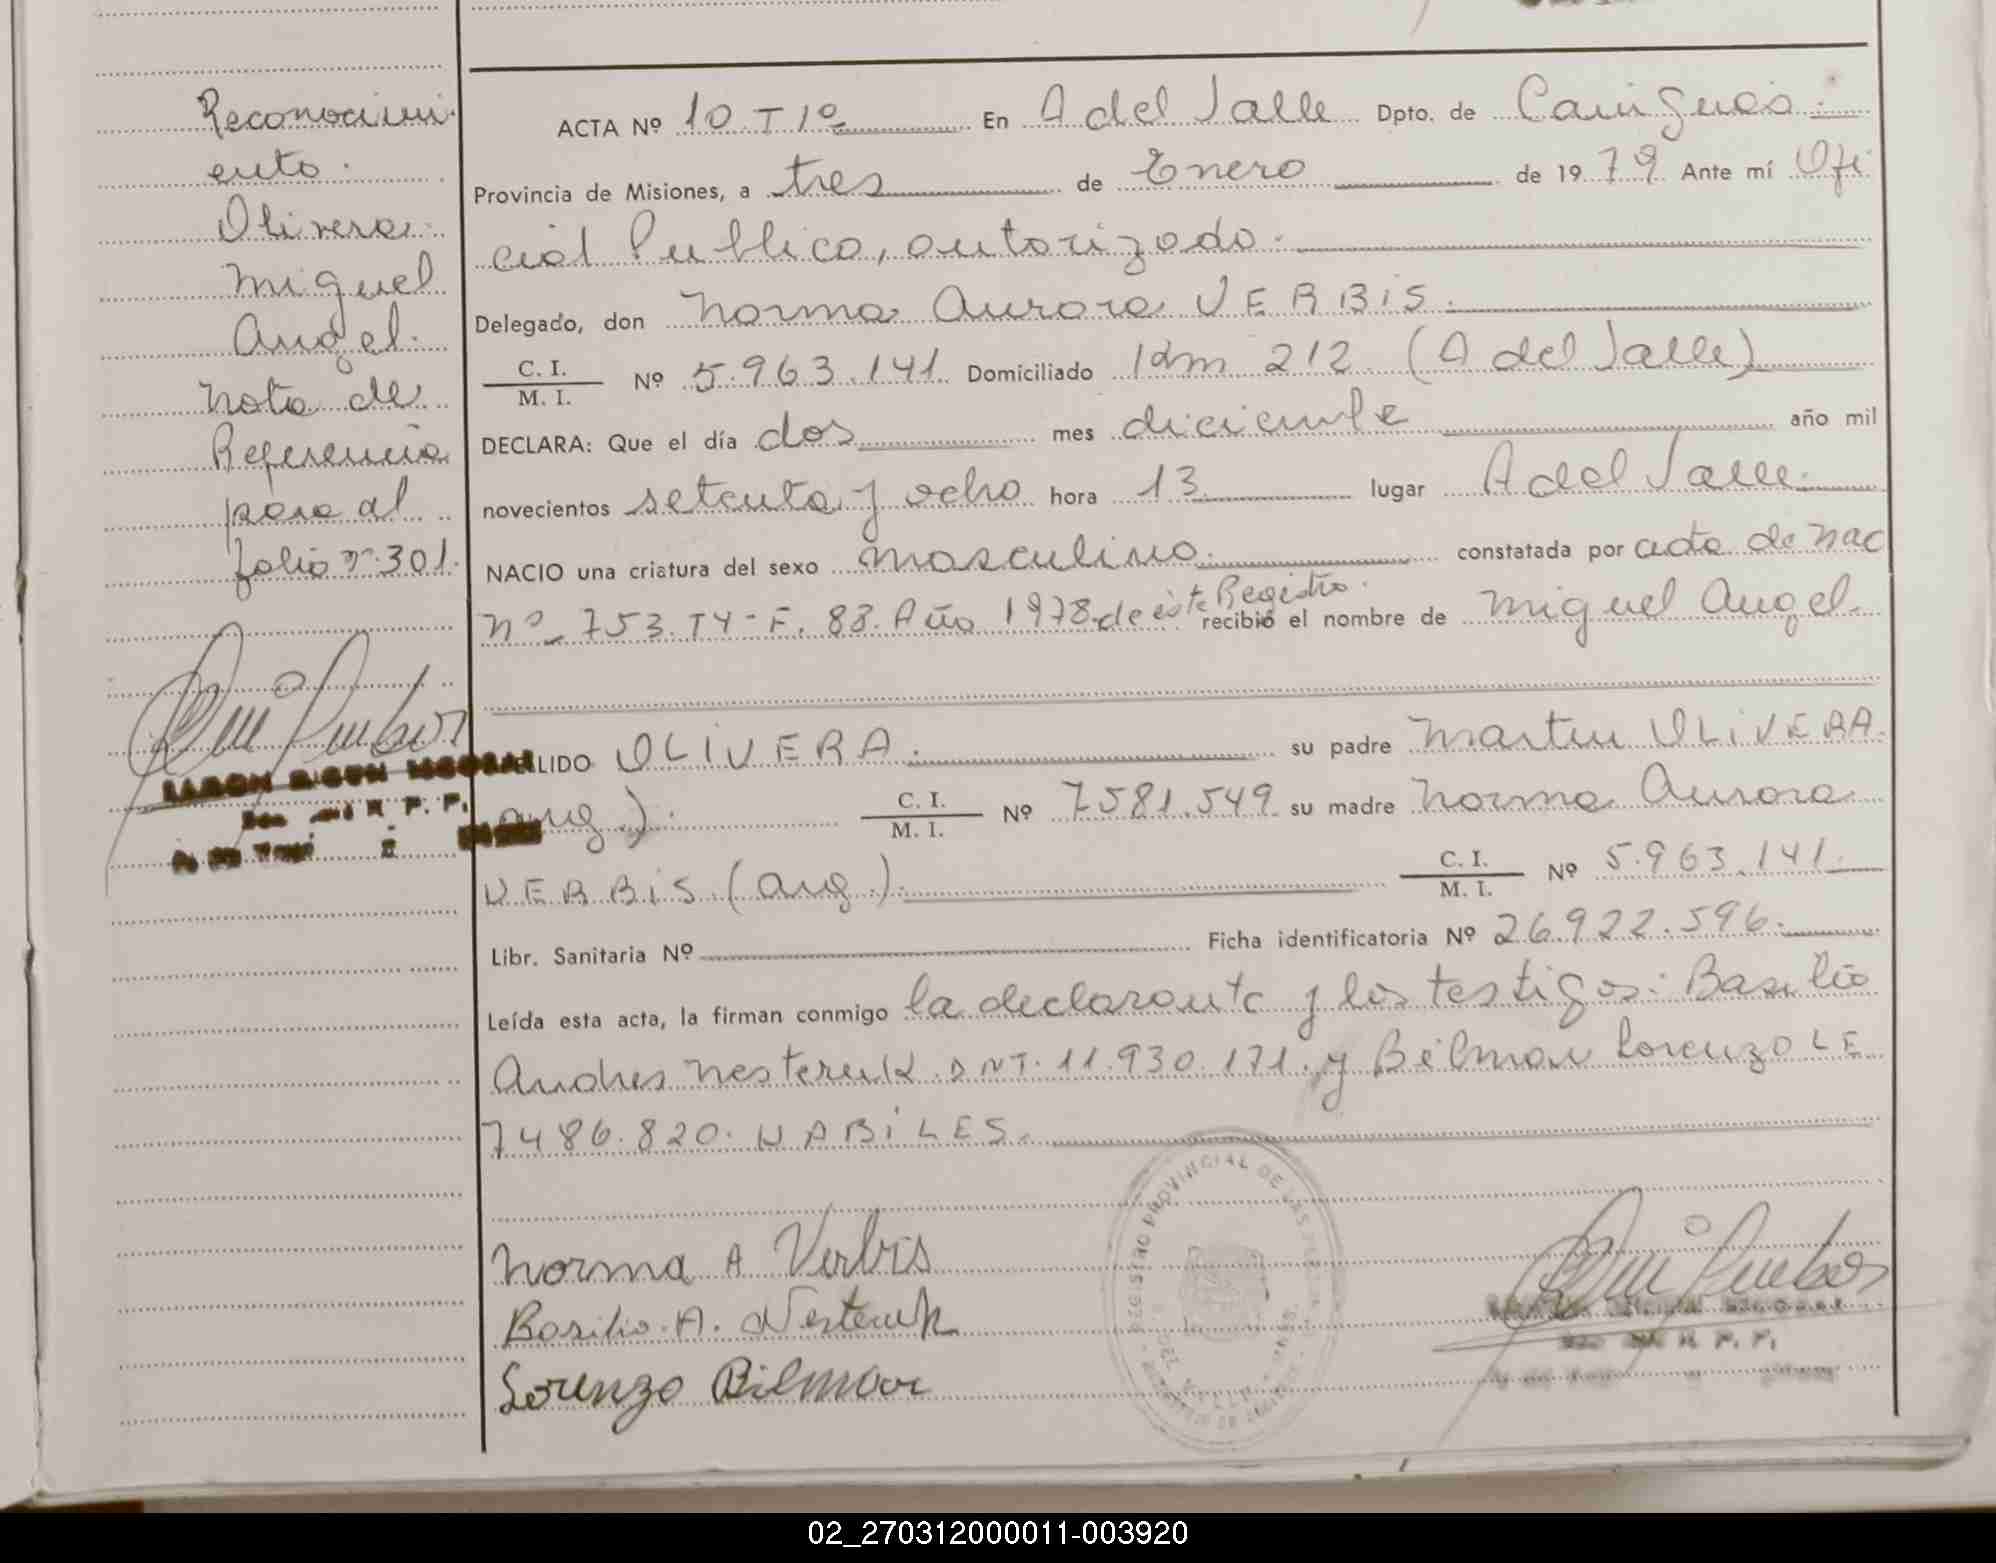 Reconocimi
ento.
Olivera
Miguel
Angel.
Nota de
Referencia
para al
folio nº 301.
ACTA Nº 10 T 1º En A del Valle Dpto. de Cainguas.
Provincia de Misiones, a tres de Enero de 1979 Ante mí Ofi
cial Publico, autorizado.
Delegado, don Norma Aurora VERBIS.
C. I.
M. I. Nº 5.963.141 Domiciliado Km 212 (A del Valle)
DECLARA: Que el día dos mes diciembre año mil
novecientos setenta y ocho hora 13 lugar A del Valle.
NACIO una criatura del sexo masculino. constatada por acta de nac
nº 753 T4-F. 83. Año 1978 de este Registro. recibió el nombre de Miguel Angel.
LLIDO OLIVERA. su padre Martin OLIVERA
arg). C. I.
M. I. Nº 7581.549 su madre Norma Aurora
VERBIS (arg). C. I.
M. I. Nº 5.963.141.
Libr. Sanitaria Nº Ficha identificatoria Nº 26.922.596.
Leída esta acta, la firman conmigo la declarante y los testigos: Basilio
Andres Nesteruk DNI. 11.930.171. y Bilmor Lorenzo LE
7486.820. HABILES.
REGISTRO PROVINCIAL DE LAS
Norma A Verbis
Basilio A. Nesteruk
Lorenzo Bilmor
02_270312000011-003920